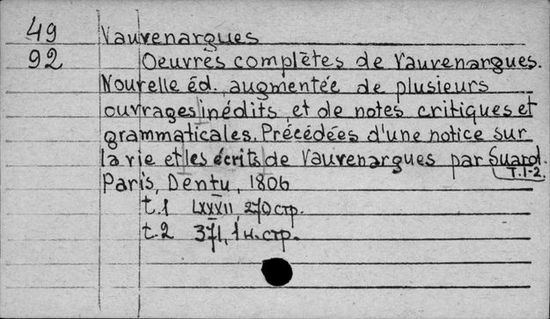 49 Vauvenargues
92 Oeuvres complètes de Vauvenargues.
Nouvelle éd. augmentée de plusieurs
ouvrages inédits et de notes critiques et
grammaticales. Précédées d'une notice sur
la vie et les écrits de Vauvenargues par Suard.
T. 1-2.
Paris, Dentu, 1806
t. 1 LXXXII, 270 стр.
t. 2 371, 1 н. стр.